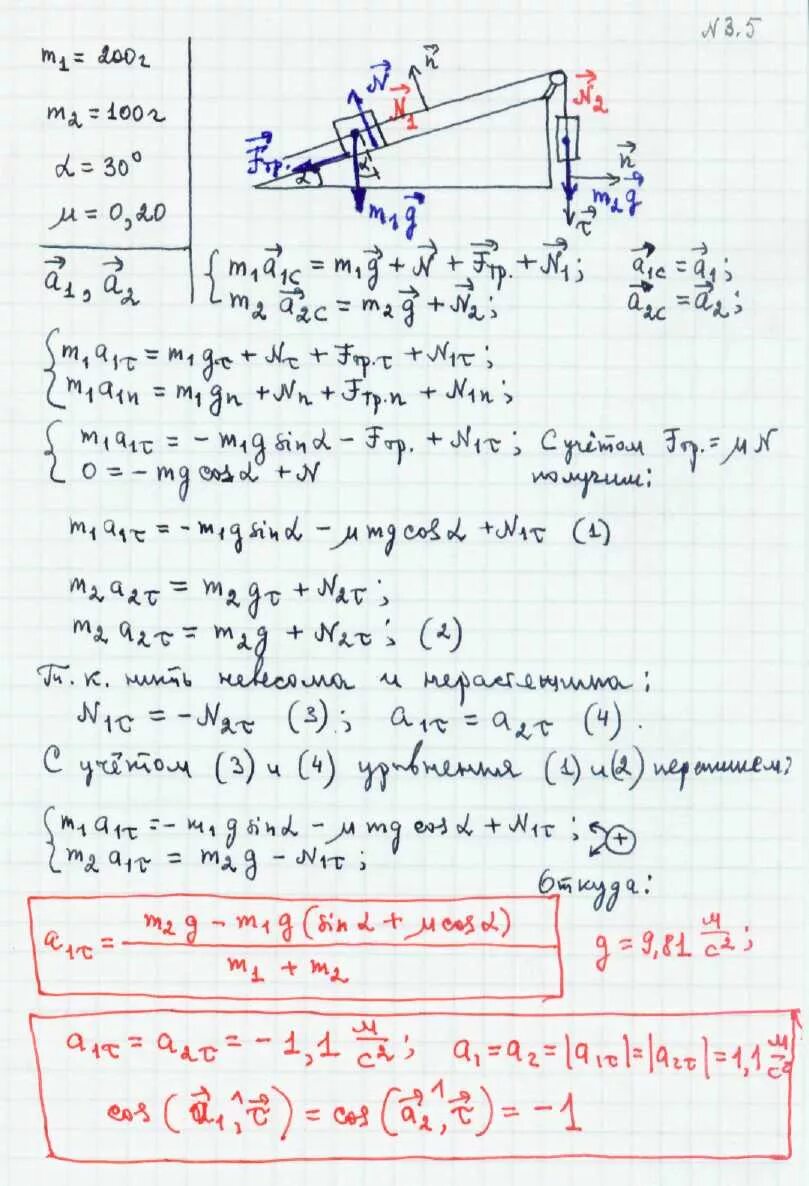 N 3.5
m₁ = 200г
m₂ = 100г
α = 30°
μ = 0,20
a⃗₁, a⃗₂
N⃗
N⃗₁
n⃗
N⃗₂
F⃗тр.
α
α
m₁g⃗
n⃗
m₂g⃗
τ⃗
{ m₁a⃗₁c = m₁g⃗ + N⃗ + F⃗тр. + N⃗₁; a⃗₁c = a⃗₁;
m₂a⃗₂c = m₂g⃗ + N⃗₂; a⃗₂c = a⃗₂;
{ m₁a₁τ = m₁gτ + Nτ + Fтр.τ + N₁τ;
m₁a₁n = m₁gn + Nn + Fтр.n + N₁n;
{ m₁a₁τ = - m₁g sinα - Fтр. + N₁τ; С учётом Fтр. = μN
0 = - mg cosα + N получим:
m₁a₁τ = - m₁g sinα - μmg cosα + N₁τ (1)
m₂a₂τ = m₂gτ + N₂τ;
m₂a₂τ = m₂g + N₂τ; (2)
Т. к. нить невесома и нерастяжима:
N₁τ = -N₂τ (3); a₁τ = a₂τ (4).
С учётом (3) и (4) уравнения (1) и (2) перепишем:
{ m₁a₁τ = - m₁g sinα - μmg cosα + N₁τ; +
m₂a₁τ = m₂g - N₁τ;
Откуда:
a₁τ = (m₂g - m₁g (sinα + μcosα)) / (m₁ + m₂) g = 9,81 м/с²;
a₁τ = a₂τ = -1,1 м/с²; a₁ = a₂ = |a₁τ| = |a₂τ| = 1,1 м/с²
cos (a⃗₁^τ⃗) = cos (a⃗₂^τ⃗) = -1